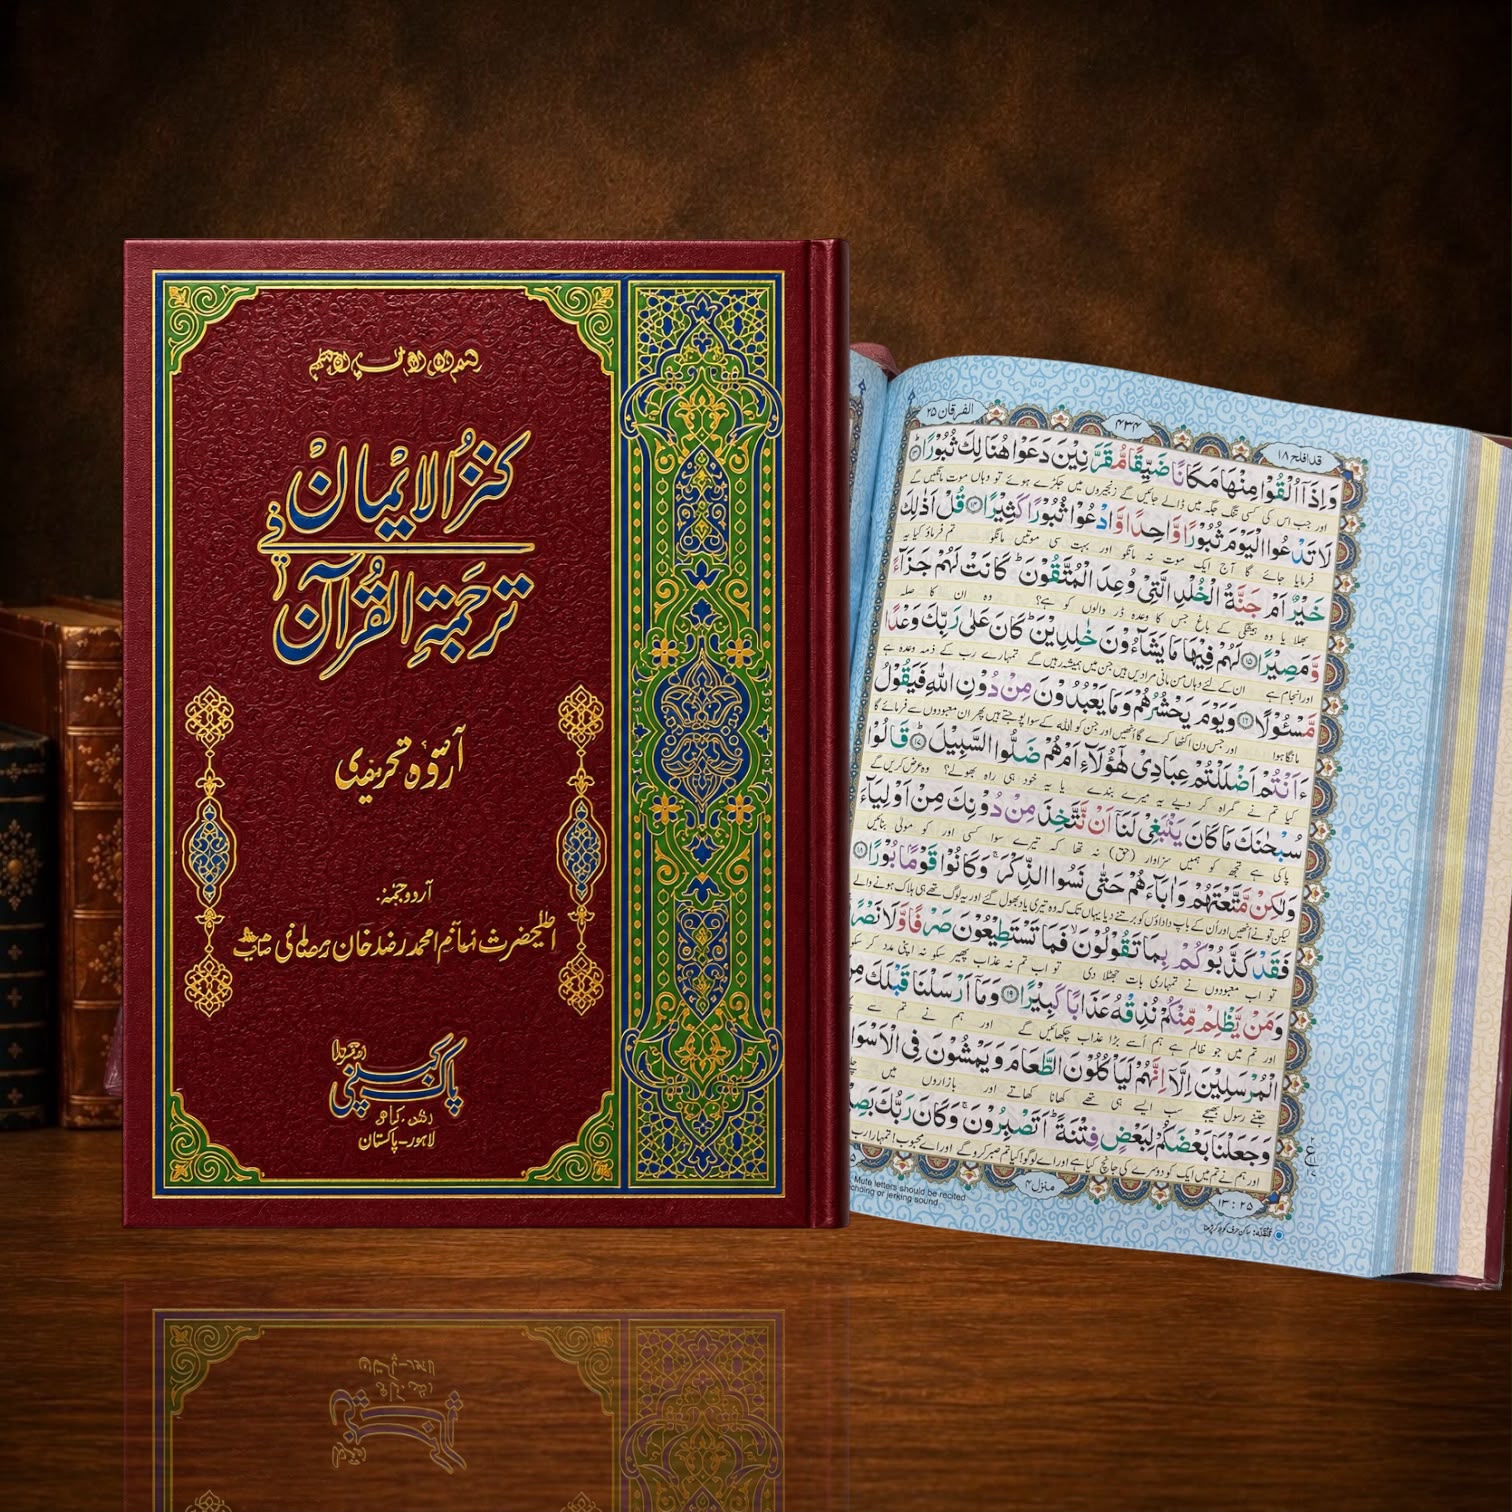 کنزُ الایمان
فی
ترجمۃ القرآن
اعلیحضرت امام محمد رضا خان
پاک کمپنی
لاہور-پاکستان
الفرقان ۲۵
۴۳۴
قد افلح ۱۸
وَاِذَاۤ اُلْقُوْا مِنْهَا مَكَانًا ضَیِّقًا مُّقَرَّنِیْنَ دَعَوْا هُنَالِكَ ثُبُوْرًا
اور جب اس کی کسی تنگ جگہ میں ڈالے جائیں گے زنجیروں میں جکڑے ہوئے تو وہاں موت مانگیں گے
لَا تَدْعُوا الْیَوْمَ ثُبُوْرًا وَّاحِدًا وَّادْعُوْا ثُبُوْرًا كَثِیْرًا ۱۴ قُلْ اَذٰلِكَ
فرمایا جائے گا آج ایک موت نہ مانگو اور بہت سی موتیں مانگو تم فرماؤ کیا یہ
خَیْرٌ اَمْ جَنَّةُ الْخُلْدِ الَّتِیْ وُعِدَ الْمُتَّقُوْنَ ؕ كَانَتْ لَهُمْ جَزَآءً
بھلا یا وہ ہمیشگی کے باغ جس کا وعدہ ڈر والوں کو ہے؟ وہ ان کا صلہ
وَّمَصِیْرًا ۱۵ لَهُمْ فِیْهَا مَا یَشَآءُوْنَ خٰلِدِیْنَ ؕ كَانَ عَلٰی رَبِّكَ وَعْدًا
اور انجام ہے ان کے لئے وہاں من مانی مرادیں ہیں جن میں ہمیشہ رہیں گے تمہارے رب کے ذمہ وعدہ ہے
مَّسْـُٔوْلًا ۱۶ وَیَوْمَ یَحْشُرُهُمْ وَمَا یَعْبُدُوْنَ مِنْ دُوْنِ اللّٰهِ فَیَقُوْلُ
مانگا ہوا اور جس دن اکٹھا کرے گا انھیں اور جن کو اللہ کے سوا پوجتے ہیں پھر ان معبودوں سے فرمائے گا
ءَاَنْتُمْ اَضْلَلْتُمْ عِبَادِیْ هٰۤؤُلَآءِ اَمْ هُمْ ضَلُّوا السَّبِیْلَ ؕ ۱۷ قَالُوْا
کیا تم نے گمراہ کر دیے یہ میرے بندے یا یہ خود ہی راہ بھولے؟ وہ عرض کریں گے
سُبْحٰنَكَ مَا كَانَ یَنْۢبَغِیْ لَنَاۤ اَنْ نَّتَّخِذَ مِنْ دُوْنِكَ مِنْ اَوْلِیَآءَ
پاکی ہے تجھ کو ہمیں سزاوار (حق) نہ تھا کہ تیرے سوا کسی اور کو مولیٰ بنائیں
وَلٰكِنْ مَّتَّعْتَهُمْ وَاٰبَآءَهُمْ حَتّٰی نَسُوا الذِّكْرَ ۚ وَكَانُوْا قَوْمًۢا بُوْرًا ۱۸
لیکن تو نے انھیں اور ان کے باپ داداؤں کو برتنے دیا یہاں تک کہ وہ تیری یاد بھول گئے اور یہ لوگ تھے ہی ہلاک ہونے والے
فَقَدْ كَذَّبُوْكُمْ بِمَا تَقُوْلُوْنَ ۙ فَمَا تَسْتَطِیْعُوْنَ صَرْفًا وَّلَا نَصْرًا
تو اب معبودوں نے تمہاری بات جھٹلا دی تو اب تم نہ عذاب پھیر سکو نہ اپنی مدد کر سکو
وَمَنْ یَّظْلِمْ مِّنْكُمْ نُذِقْهُ عَذَابًا كَبِیْرًا ۱۹ وَمَاۤ اَرْسَلْنَا قَبْلَكَ مِنَ
اور تم میں جو ظالم ہے ہم اُسے بڑا عذاب چکھائیں گے اور ہم نے تم سے
الْمُرْسَلِیْنَ اِلَّاۤ اِنَّهُمْ لَیَاْكُلُوْنَ الطَّعَامَ وَیَمْشُوْنَ فِی الْاَسْوَا
جتنے رسول بھیجے سب ایسے ہی تھے کھانا کھاتے اور بازاروں میں
وَجَعَلْنَا بَعْضَكُمْ لِبَعْضٍ فِتْنَةً ؕ اَتَصْبِرُوْنَ ۚ وَكَانَ رَبُّكَ بَصِ
اور ہم نے تم میں ایک کو دوسرے کی جانچ کیا ہے اور اے لوگو! کیا تم صبر کرو گے اور اے محبوب! تمہارا رب
منزل ۴
۱۳ : ۲۵
Mute letters should be recited
echoing or jerking sound.
قلقلہ: ساکن حرف کو ہلا کر پڑھنا